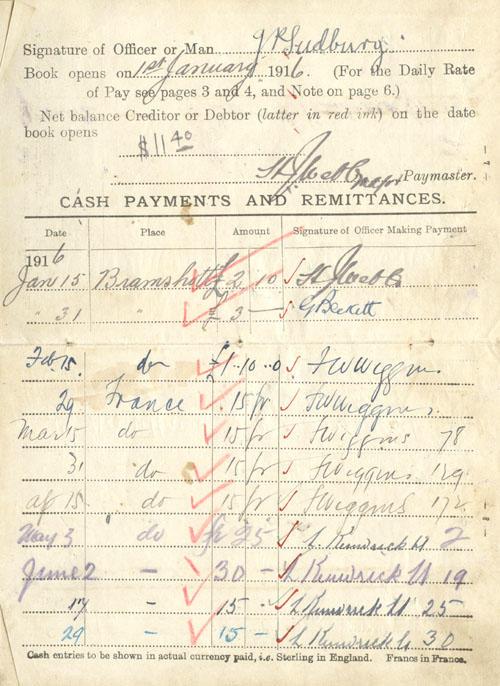 Signature of Officer or Man J R Sudbury
Book opens on 1st January 1916. (For the Daily Rate
of Pay see pages 3 and 4, and Note on page 6.)
Net balance Creditor or Debtor (latter in red ink) on the date
book opens
$11 40
Major Paymaster.
CASH PAYMENTS AND REMITTANCES.
Date Place Amount Signature of Officer Making Payment
1916
Jan 15 Bramshott £2 10
" 31 £3 — G Beckett
Feb. 15. do £1.10.0 FW Wiggins
29 France 15 fr FW Wiggins.
Mar 15 do 15 fr F Wiggins 78
31 do 15 fr F Wiggins 129
Ap 15 do 15 fr F Wiggins 172
May 3 do fr 25 Kendrick Lt 2
June 2 — 30 — Kendrick Lt 19
17 — 15 - Kendrick Lt 25
29 - 15 - Kendrick Lt 30
Cash entries to be shown in actual currency paid, i.e. Sterling in England. Francs in France.